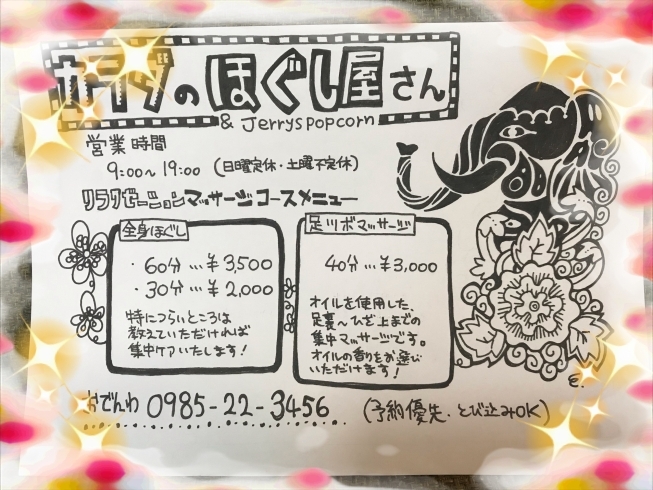 カラダのほぐし屋さん
& Jerryspopcorn
営業時間
9:00～19:00 (日曜定休・土曜不定休)
リラクゼーションマッサージコースメニュー
全身ほぐし
・60分…¥3,500
・30分…¥2,000
特につらいところは
教えていただければ
集中ケアいたします!
足ツボマッサージ
40分…¥3,000
オイルを使用した、
足裏～ひざ上までの
集中マッサージです。
オイルの香りをお選び
いただけます!
おでんわ 0985-22-3456 (予約優先・とび込みOK)
E.